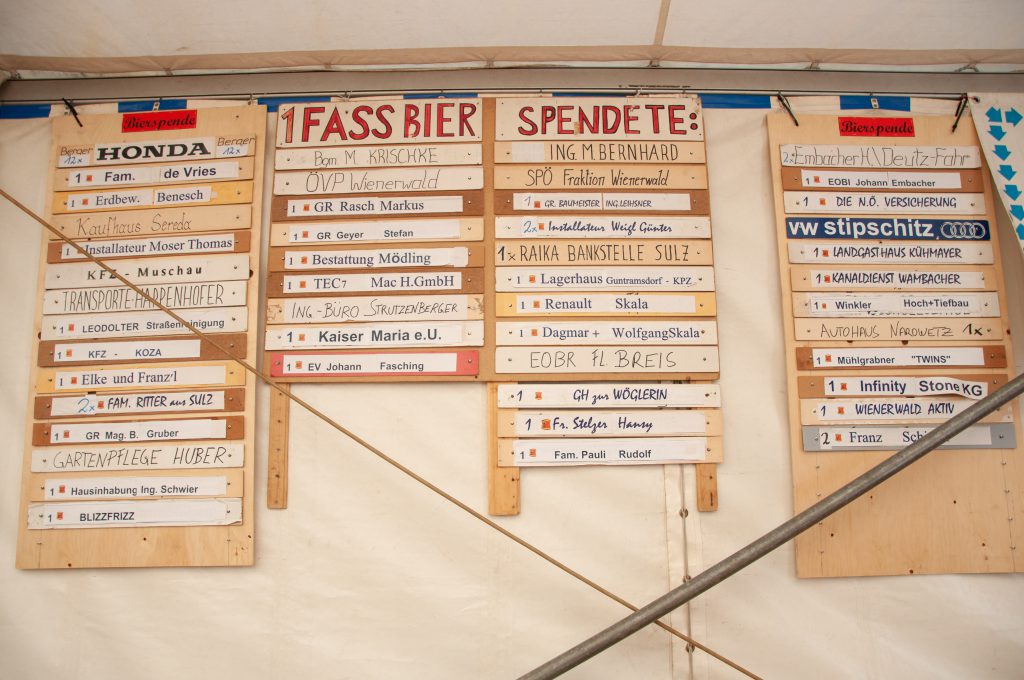 Bierspende
Berger
12x
HONDA
Berger
12x
1 Fam. de Vries
1 Erdbew. Benesch
Kaufhaus Sereda
1 Installateur Moser Thomas
KFZ - Muschau
TRANSPORTE HAPPENHOFER
1 LEODOLTER Straßenreinigung
1 KFZ - KOZA
1 Elke und Franz'l
2x FAM. RITTER aus SULZ
1 GR Mag. B. Gruber
GARTENPFLEGE HUBER
1 Hausinhabung Ing. Schwier
1 BLIZZFRIZZ
1 FASS BIER
Bgm M. KRISCHKE
ÖVP Wienerwald
1 GR Rasch Markus
1 GR Geyer Stefan
1 Bestattung Mödling
1 TEC7 Mac H.GmbH
ING-BÜRO STRUTZENBERGER
1 Kaiser Maria e.U.
1 EV Johann Fasching
SPENDETE:
ING. M. BERNHARD
SPÖ Fraktion Wienerwald
1 GR. BAUMEISTER ING. LEIHSNER
2x Installateur Weigl Günter
1x RAIKA BANKSTELLE SULZ
1 Lagerhaus Guntramsdorf - KPZ
1 Renault Skala
1 Dagmar + WolfgangSkala
EOBR FL BREIS
1 GH zur WÖGLERIN
1 Fr. Stelzer Hansy
1 Fam. Pauli Rudolf
Bierspende
2x Embacher H\Deutz-Fahr
1 EOBI Johann Embacher
1 DIE N.Ö. VERSICHERUNG
vw stipschitz,
1 LANDGASTHAUS KÜHMAYER
1 KANALDIENST WAMBACHER
1 Winkler Hoch+Tiefbau
AUTOHAUS NAROWETZ 1x
1 Mühlgrabner "TWINS"
1 Infinity Stone KG
1 WIENERWALD AKTIV
2 Franz